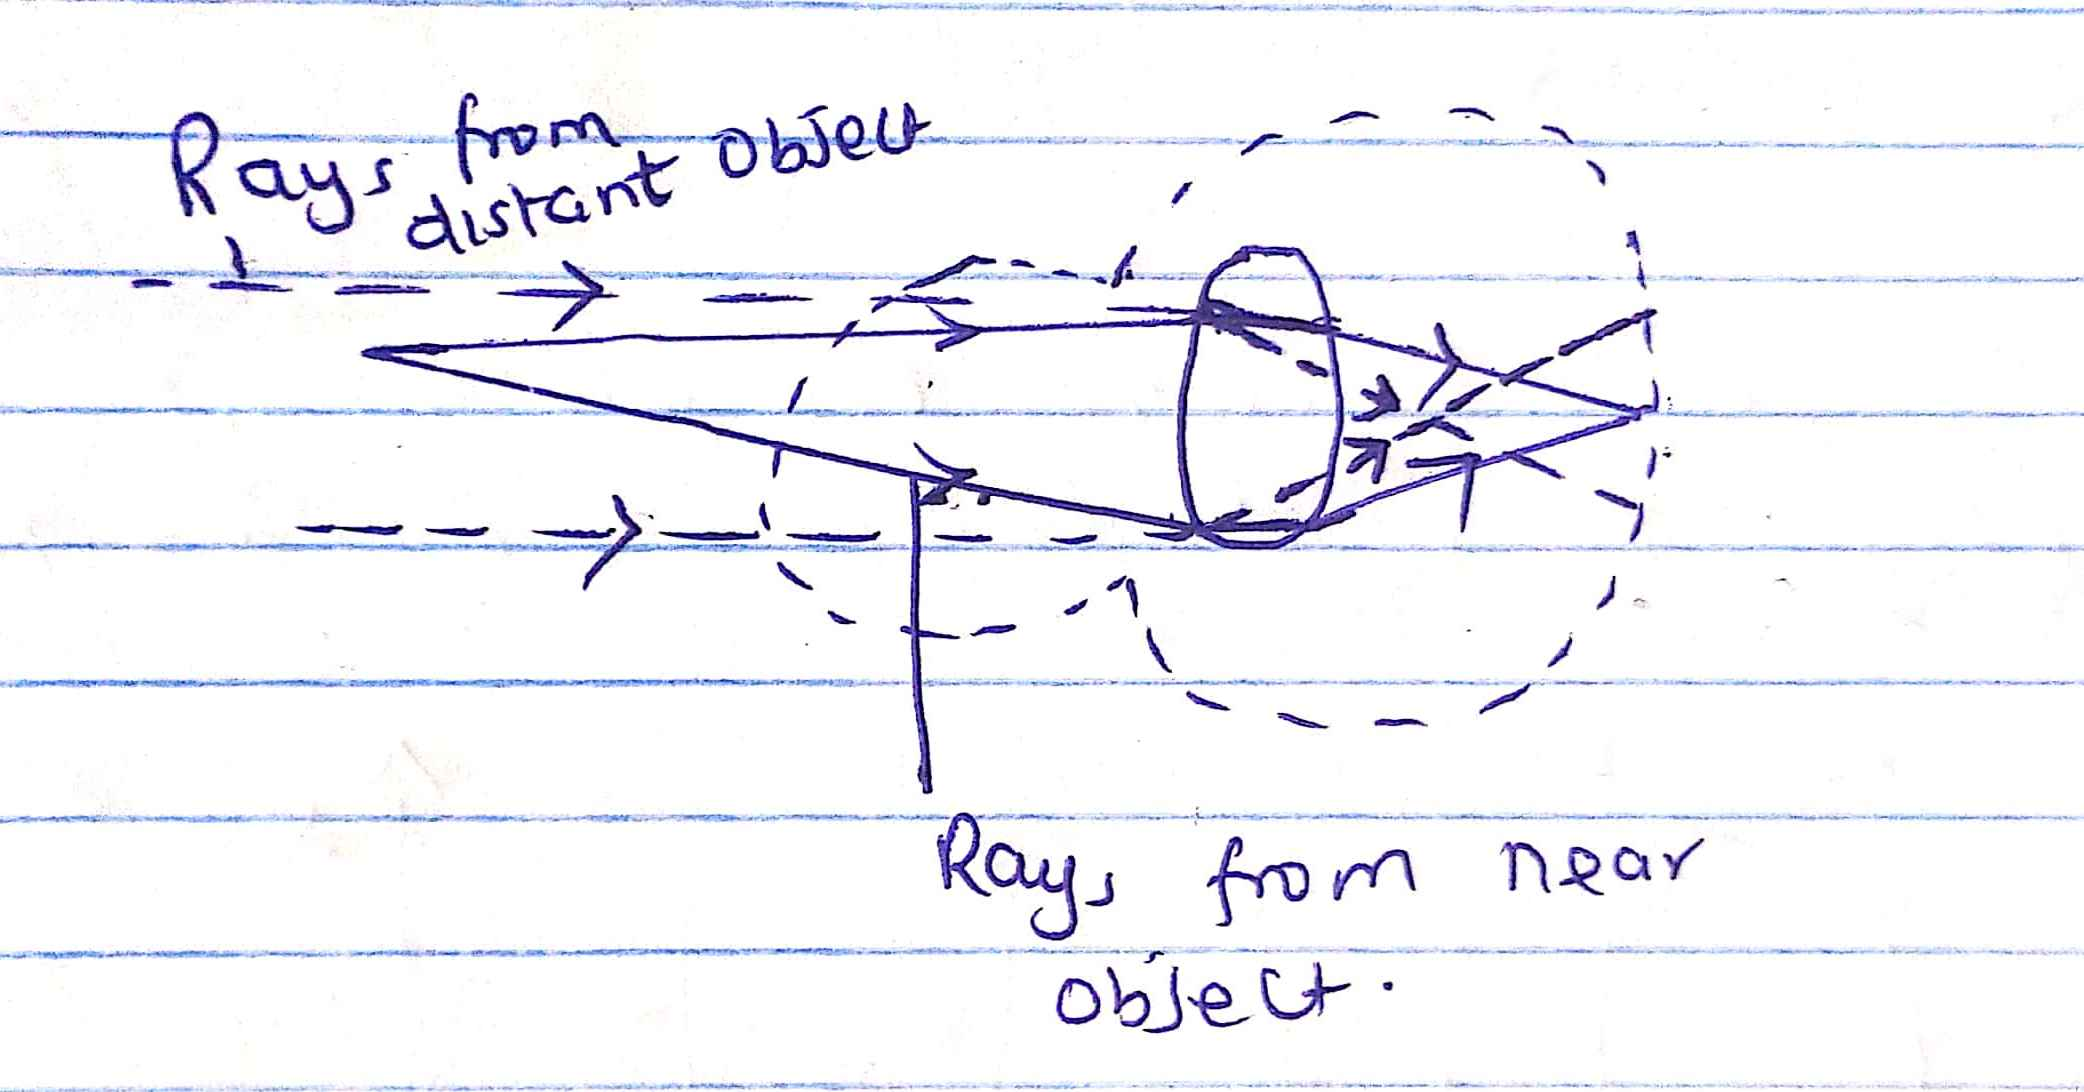 Rays from
distant object
Rays from near
object.